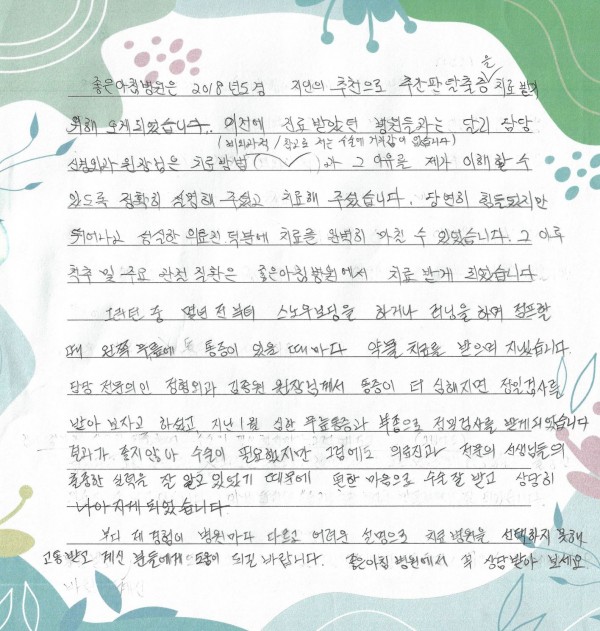 좋은아침병원은 2018년5경 지인의 추천으로 추간판탈출증을 치료받기
위해 오게되었습니다. 이전에 진료받았던 병원들과는 달리 담당
(비외과적 / 참고로 저는 수술에 거부감이 없습니다)
신경외과 원장님은 치료방법 과 그 이유를 제가 이해할 수
있도록 정확히 설명해 주셨고 치료해 주셨습니다. 당연히 힘들었지만
뛰어나고 성실한 의료진 덕분에 치료를 완벽히 마친 수 있었습니다. 그 이후
척추 및 주요 관절 질환은 좋은아침병원에서 치료 받게 되었습니다
그러던 중 몇년 전부터 스노우보딩을 하거나 러닝을 하며 점프할
때 왼쪽 무릎에 통증이 있을 때마다 약물 치료를 받으며 지냈습니다.
담당 전문의인 정형외과 김종원 원장님께서 통증이 더 심해지면 정밀검사를
받아 보자고 하셨고, 지난1월 심한 무릎통증과 부종으로 정밀검사를 받게되었습니다
결과가 좋지않아 수술이 필요했지만 그럼에도 의료진과 전문의 선생님들의
출중한 실력을 잘 알고 있었기 때문에 편한 마음으로 수술 잘 받고 상당히
나아지게 되었습니다.
부디 제 경험이 병원마다 다르고 어려운 설명으로 치료 병원을 선택하지 못해
고통 받고 계신 분들에게 도움이 되길 바랍니다. 좋은아침병원에서 꼭 상담받아 보세요